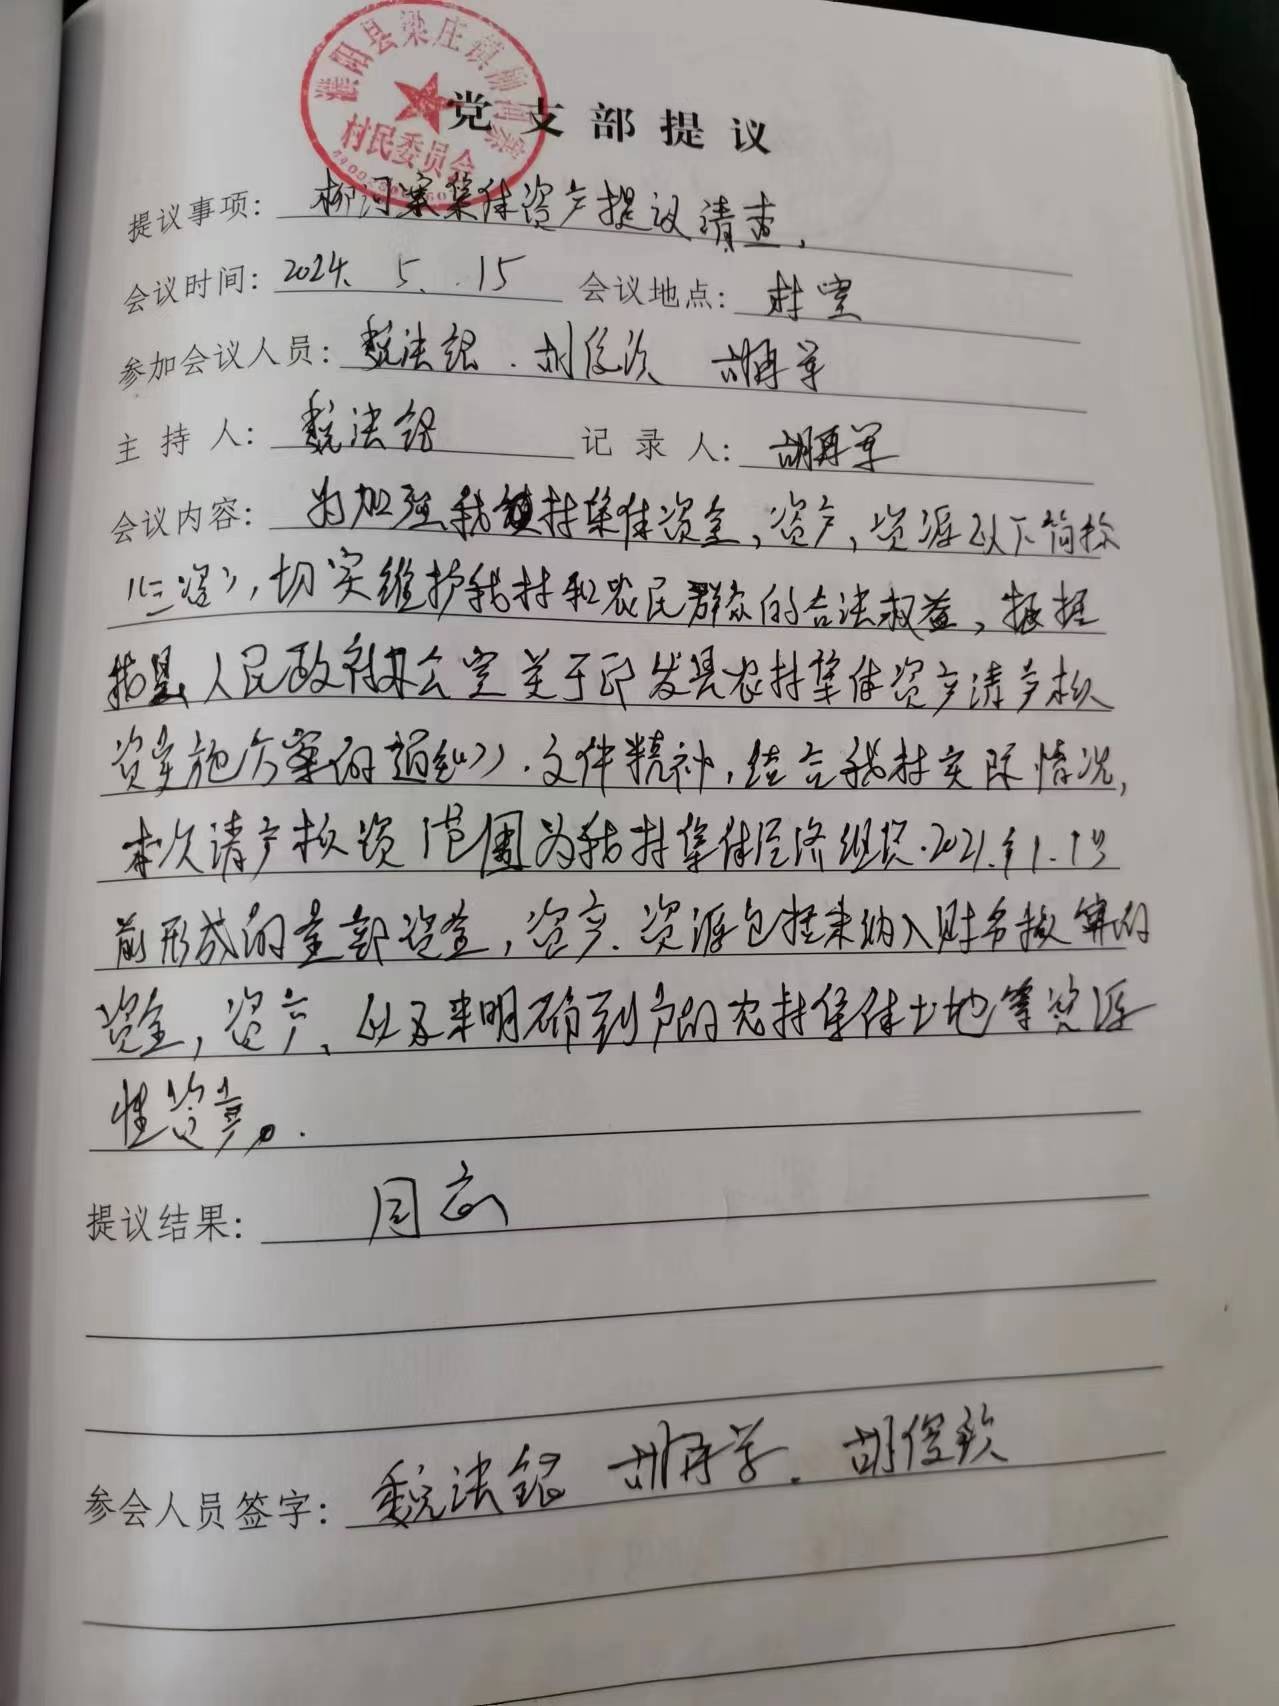 濮阳县梁庄镇柳河寨
村民委员会
党支部提议
提议事项：柳河寨集体资产提议清查，
会议时间：2024. 5. 15 会议地点：村室
参加会议人员：魏法银．胡俊钦 胡再军
主持人：魏法银 记录人：胡再军
会议内容：为加强我镇村集体资金，资产，资源以下简称
“三资”，切实维护我村和农民群众的合法权益，根据
我县人民政府办公室关于印发县农村集体资产清产核
资实施方案的通知》．文件精神，结合我村实际情况，
本次清产核资范围为我村集体经济组织．2021.年1.1号
前形成的全部资金，资产．资源包括未纳入财务核算的
资金，资产、以及未明确到户的农村集体土地等资源
性资产。
提议结果：同意
参会人员签字：魏法银 胡再军．胡俊钦